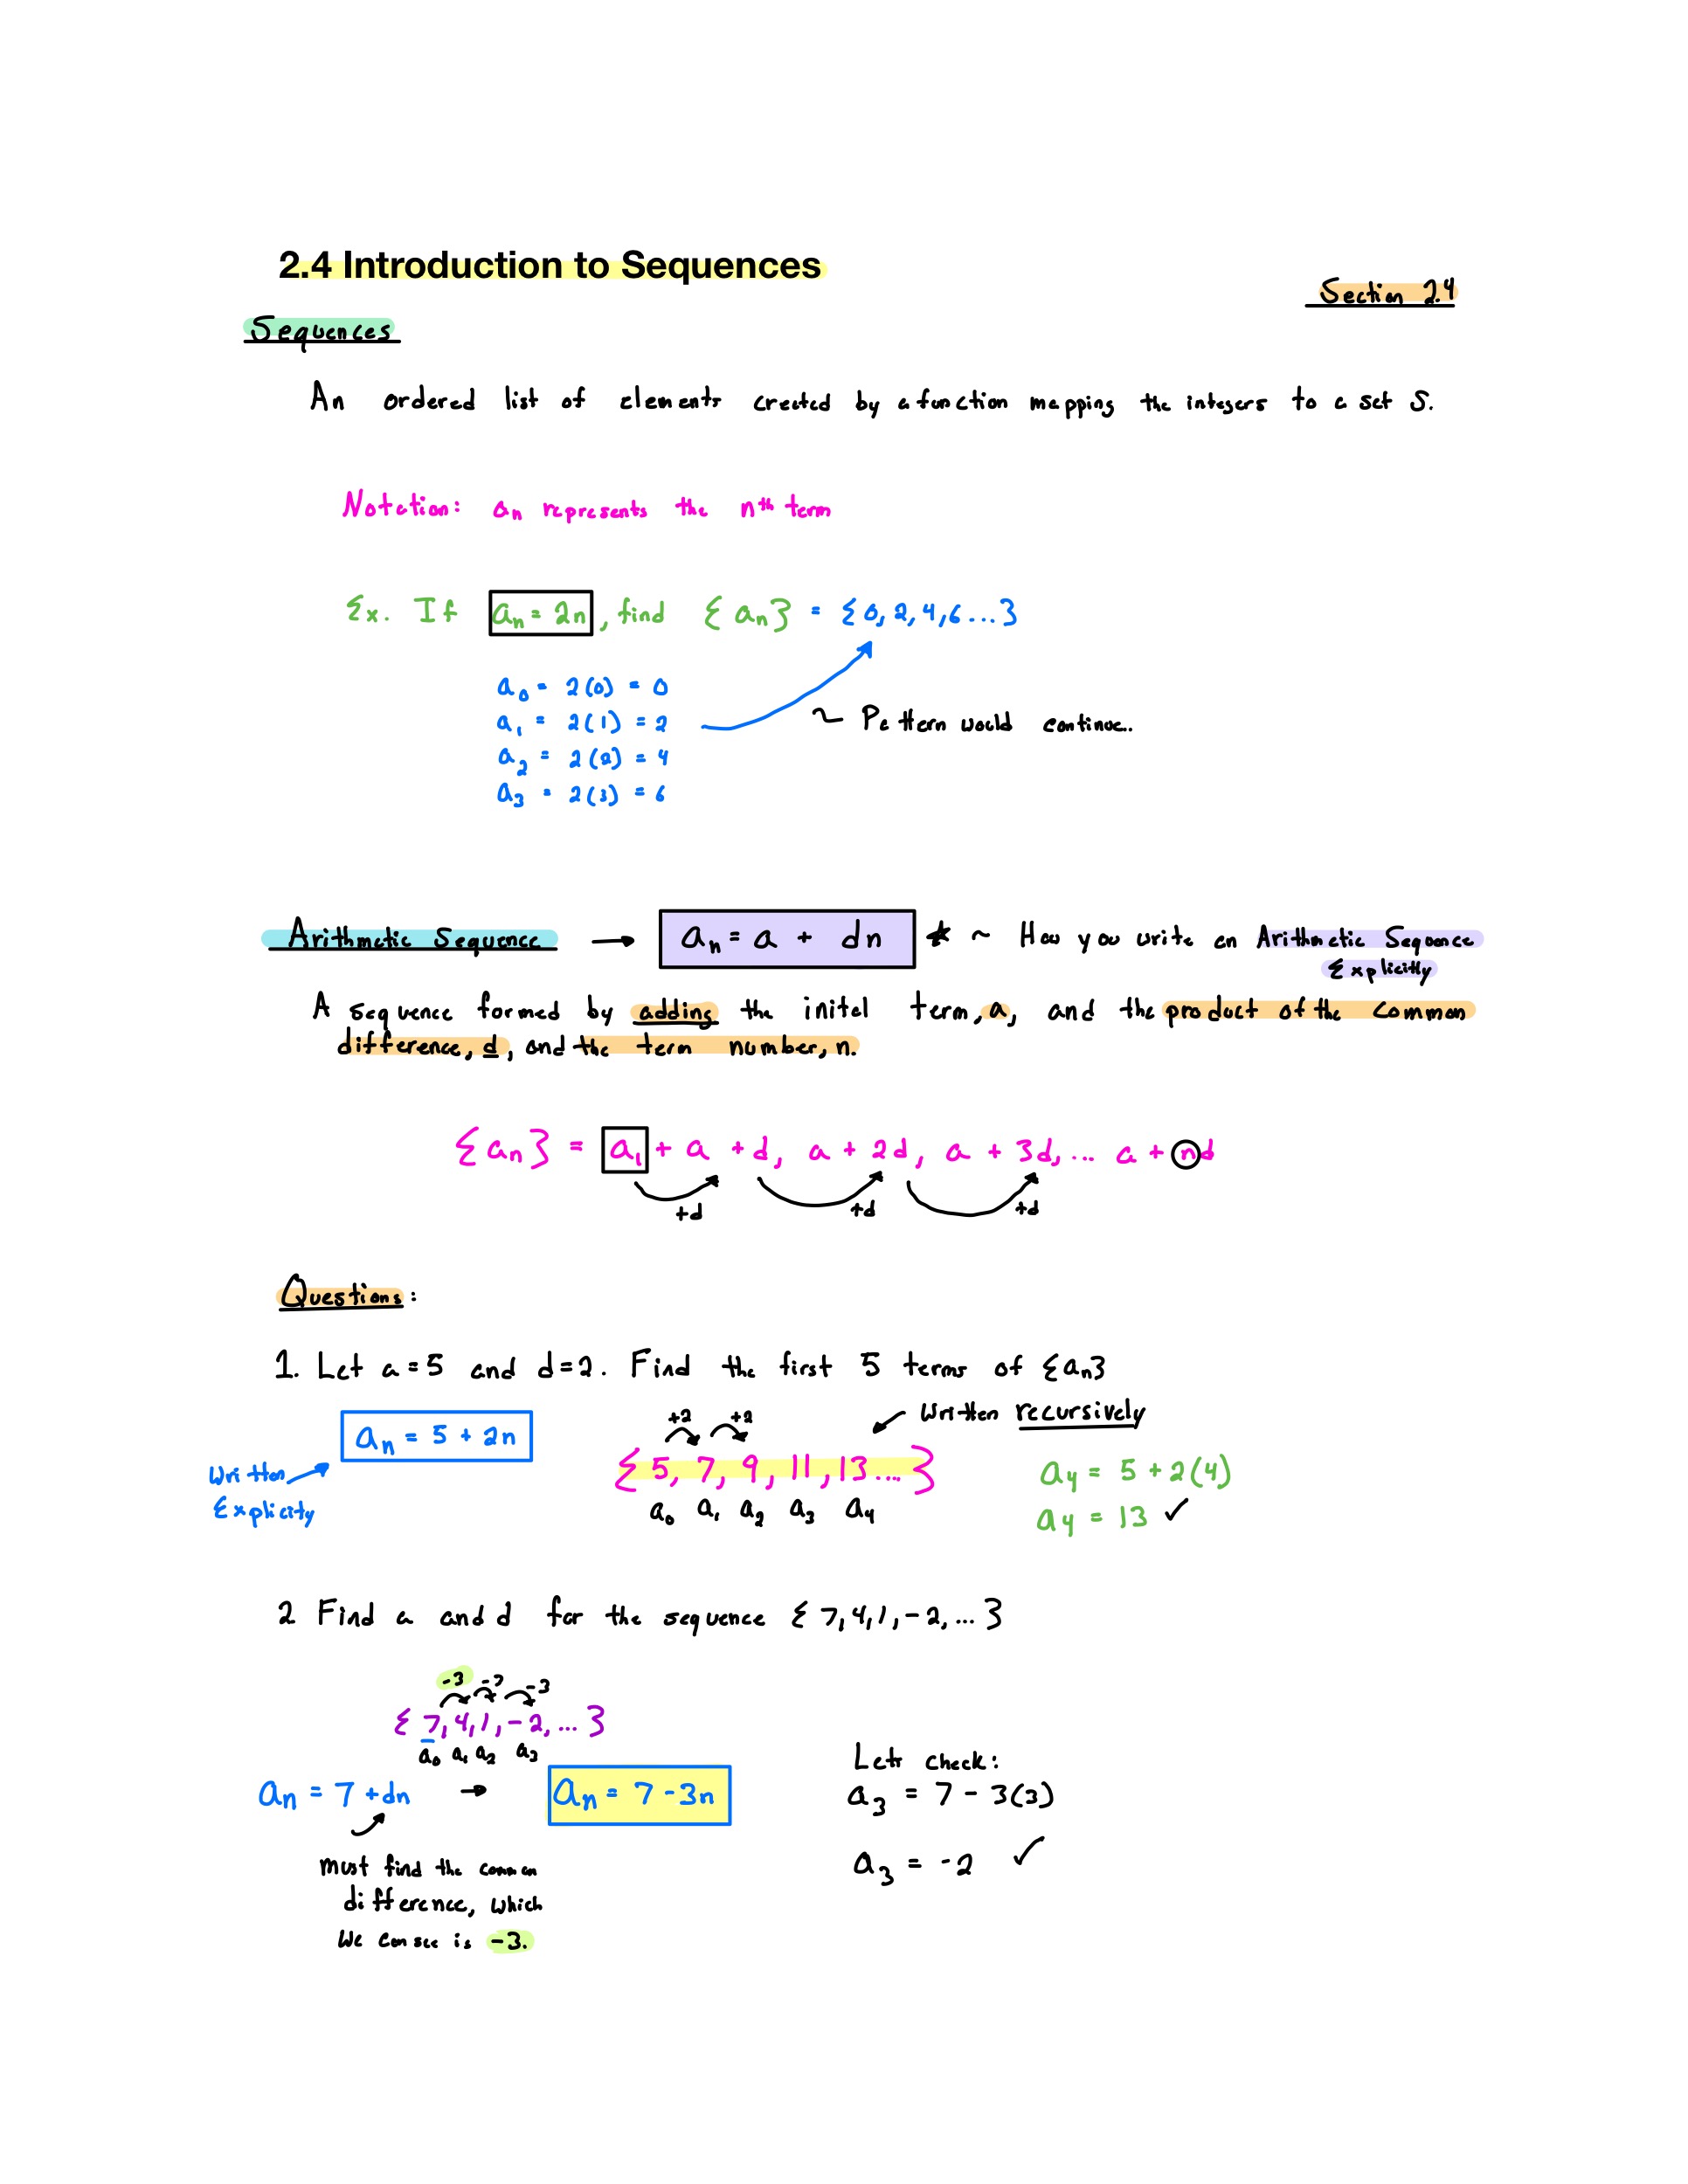 2.4 Introduction to Sequences
Section 2.4
Sequences
An ordered list of elements created by a function mapping the integers to a set S.
Notation: aₙ represents the nᵗʰ term
Ex. If aₙ = 2n, find {aₙ} = {0, 2, 4, 6...}
a₀ = 2(0) = 0
a₁ = 2(1) = 2
~ Pattern would continue..
a₂ = 2(2) = 4
a₃ = 2(3) = 6
Arithmetic Sequence → aₙ = a + dn ★ ~ How you write an Arithmetic Sequence
Explicitly
A sequence formed by adding the inital term, a, and the product of the common
difference, d, and the term number, n.
{aₙ} = a, + a + d, a + 2d, a + 3d, ... a + nd
+d +d +d
Questions:
1. Let a = 5 and d = 2. Find the first 5 terms of {aₙ}
Written recursively
+2 +2
aₙ = 5 + 2n
{5, 7, 9, 11, 13...}
Written
Explicity
a₀ a₁ a₂ a₃ a₄
a₄ = 5 + 2(4)
a₄ = 13 ✓
2 Find a and d for the sequence {7, 4, 1, -2, ...}
-3 -3 -3
{7, 4, 1, -2, ...}
a₀ a₁ a₂ a₃
aₙ = 7 + dn → aₙ = 7 - 3n
must find the common
difference, which
we can see is -3.
Lets check:
a₃ = 7 - 3(3)
a₃ = -2 ✓